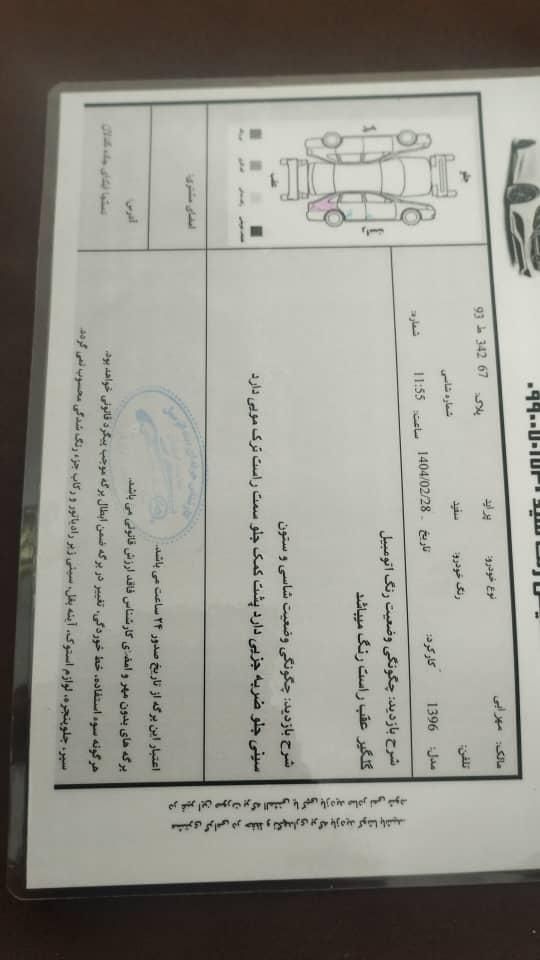 مالک: مهرابی نوع خودرو: پراید پلاک: 67 342 ط 93
تلفن: رنگ خودرو: سفید شماره شاسی
مدل: 1396 کارکرد: تاریخ 1404/02/28 ساعت: 11:55 شماره:
شرح بازدید: چگونگی وضعیت رنگ اتومبیل
گلگیر عقب راست رنگ میباشد
شرح بازدید: چگونگی وضعیت شاسی و ستون
سینی جلو ضربه جزیی دارد پشت کمک جلو سمت راست ترک مویی دارد
جلو
عقب
اعتبار این برگه از تاریخ صدور ۲۴ ساعت می باشد.
برگه های بدون مهر و امضای کارشناس فاقد ارزش قانونی می باشد.
هرگونه سوء استفاده، خط خوردگی، تغییر در برگه ضمن ابطال برگه موجب پیگرد قانونی خواهد بود.
سپر، جلوپنجره، لوازم استوک، آینه بغل، سینی زیر رادیاتور و رکاب جزء رنگ شدگی محسوب نمی گردد.
امضای مشتری:
آدرس: